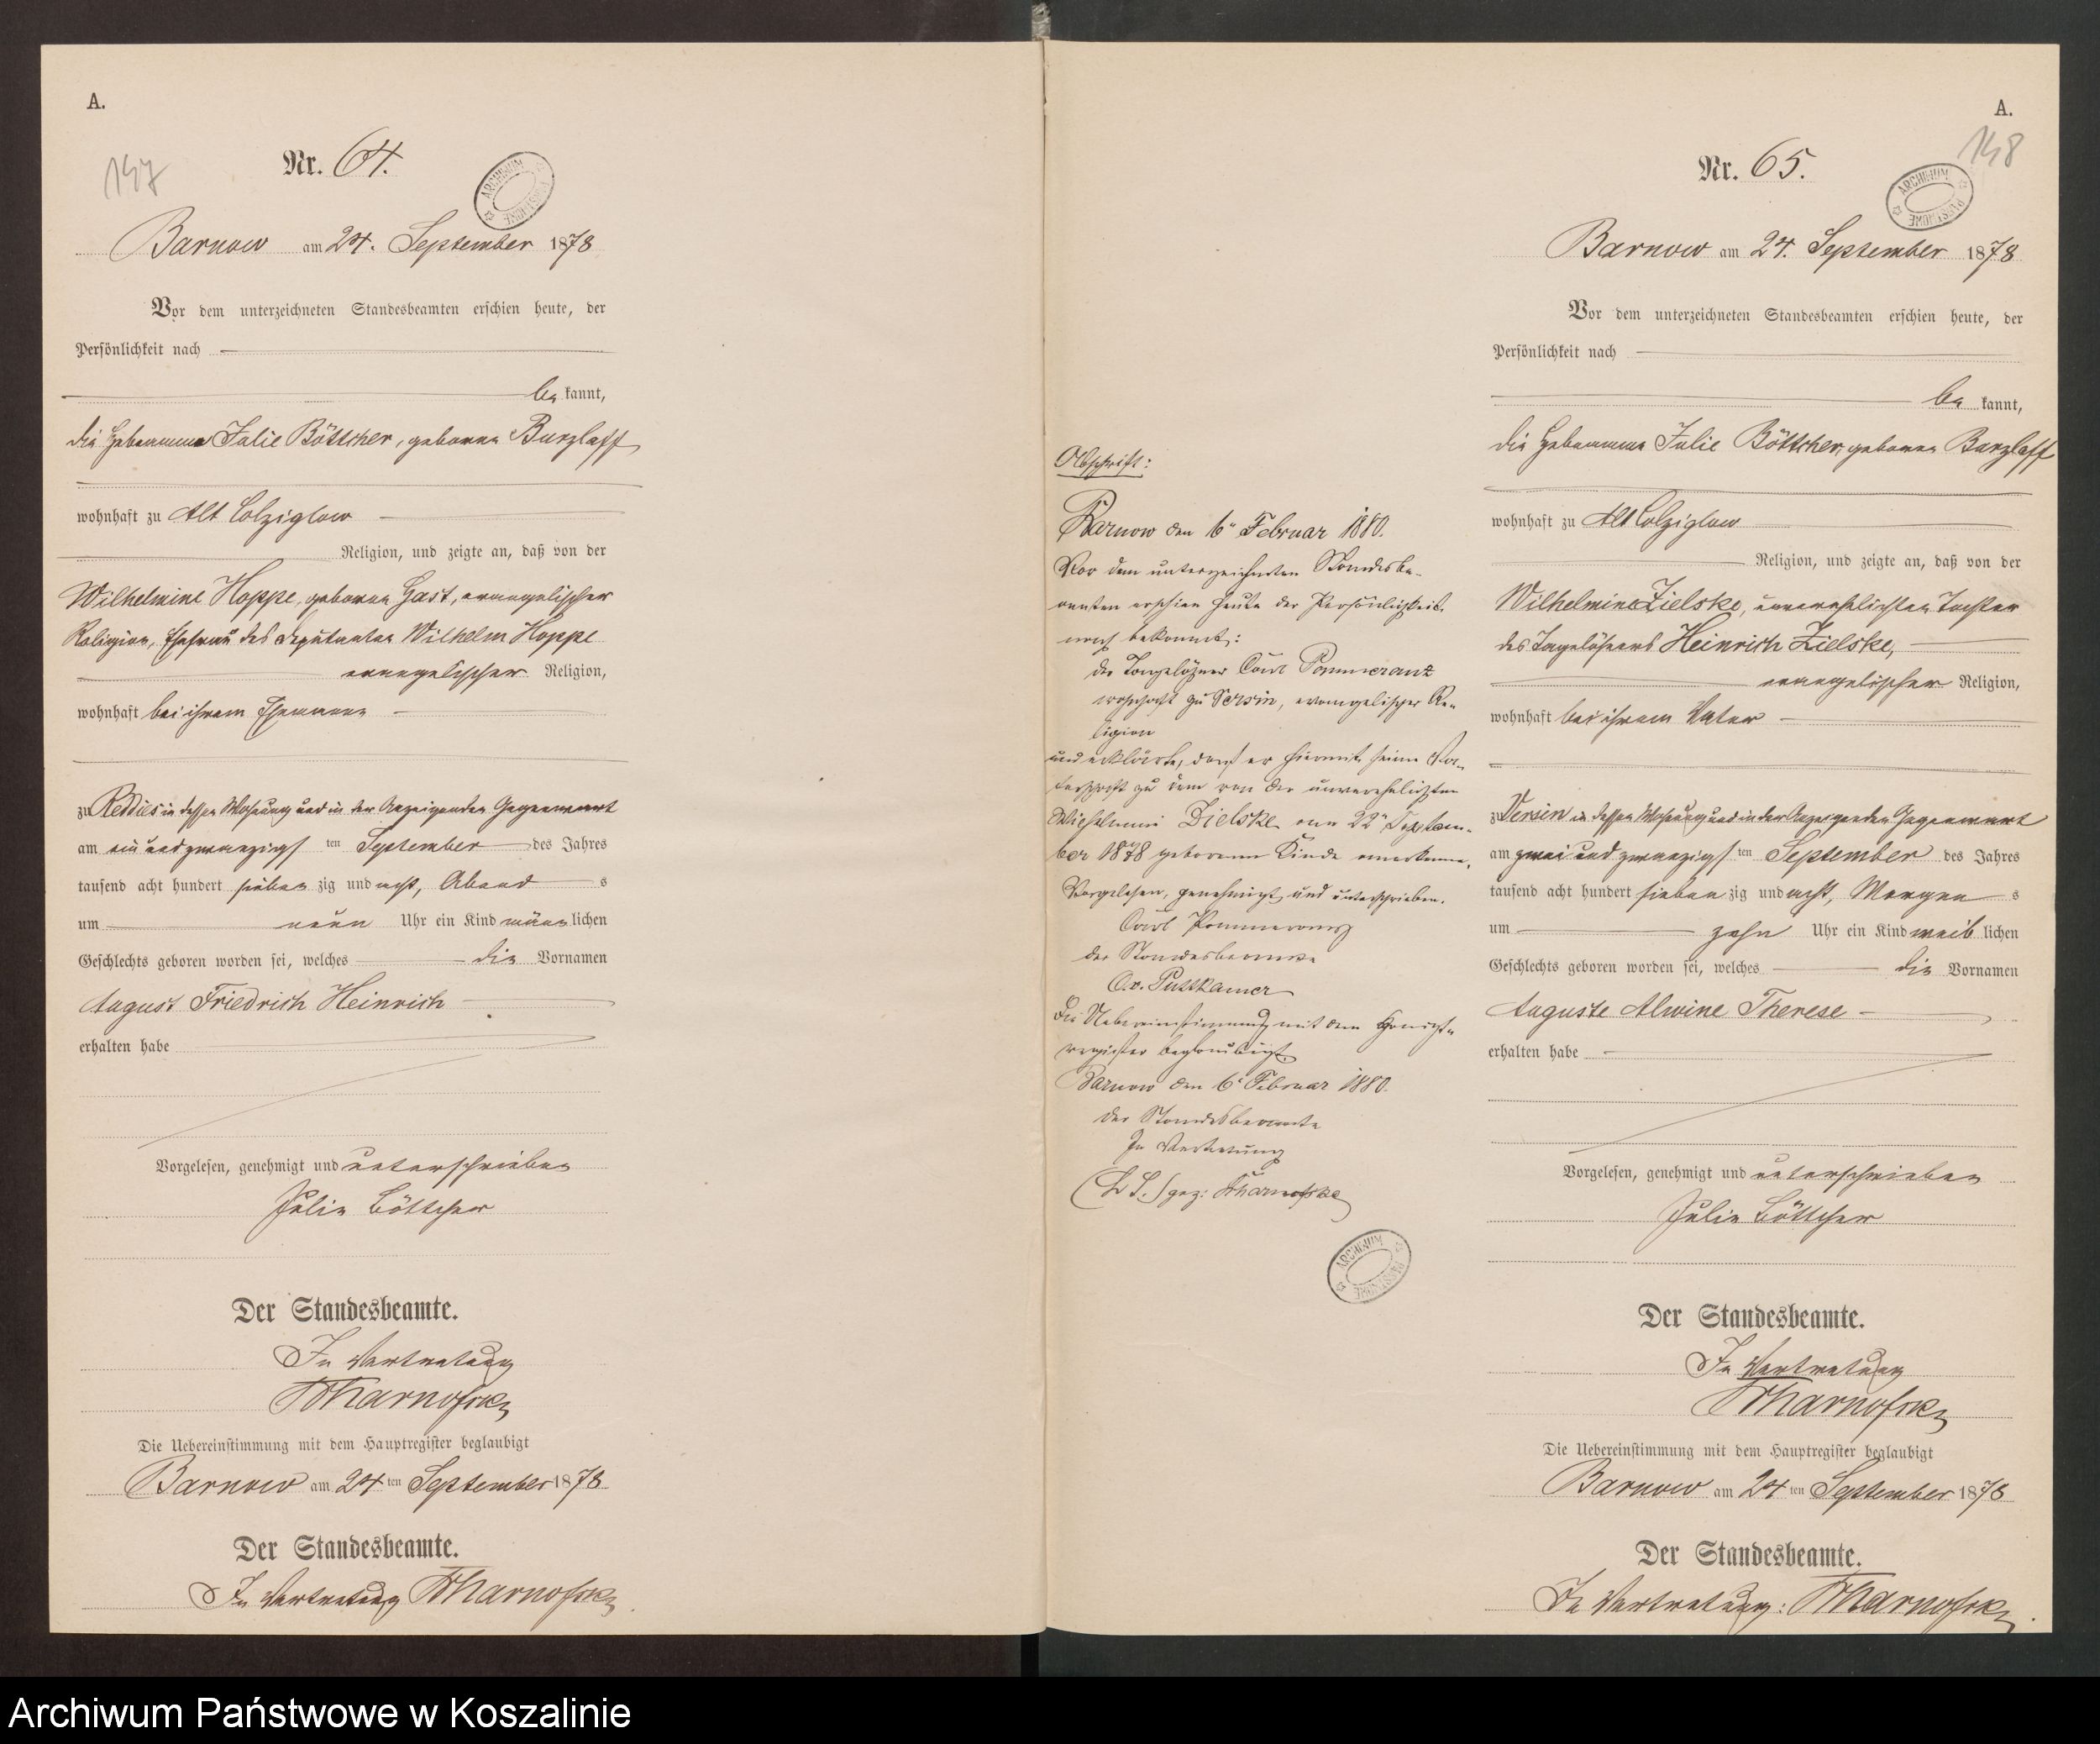 A.
147
Nr. 64.
ARCHIWUM PAŃSTWOWE
Barnow am 24. September 1878
Vor dem unterzeichneten Standesbeamten erschien heute, der
Persönlichkeit nach
be kannt,
die Hebeamme Julie Böttcher, geborne Burzlaff
wohnhaft zu Alt Colziglow
Religion, und zeigte an, daß von der
Wilhelmine Hoppe, geborne Gast, evangelischer
Religion, Ehefrau des Deputanten Wilhelm Hoppe
evangelischer Religion,
wohnhaft bei ihrem Ehemann
zu Reddies in dessen Wohnung und in der Anzeigenden Gegenwart
am ein und zwanzigsten September des Jahres
tausend acht hundert siebenzig und acht, Abends
um neun Uhr ein Kind männlichen
Geschlechts geboren worden sei, welches die Vornamen
August Friedrich Heinrich
erhalten habe
Vorgelesen, genehmigt und unterschrieben
Julie Böttcher
Der Standesbeamte.
In Vertretung
Die Uebereinstimmung mit dem Hauptregister beglaubigt
Barnow am 24ten September 1878
Der Standesbeamte.
In Vertretung
Abschrift:
Barnow den 6n Februar 1880.
Vor dem unterzeichneten Standesbe-
amten erschien heute der Persönlichkeit
nach bekannt:
der Tagelöhner Carl Pommeranz
wohnhaft zu Versin, evangelischer Re-
ligion
und erklärte, daß er hiermit seine Va-
terschaft zu dem von der unverehelichten
Wilhelmine Zielske am 22n Septem-
ber 1878 geborenen Kinde anerkenne.
Vorgelesen, genehmigt und unterschrieben.
Carl Pommeranz
der Standesbeamte
v. Puttkamer
Die Uebereinstimmung mit dem Haupt-
register beglaubigt
Barnow den 6n Februar 1880.
der Standesbeamte
In Vertretung
(L. S.) gez:
ARCHIWUM PAŃSTWOWE
A.
148
Nr. 65.
ARCHIWUM PAŃSTWOWE
Barnow am 24. September 1878
Vor dem unterzeichneten Standesbeamten erschien heute, der
Persönlichkeit nach
be kannt,
die Hebeamme Julie Böttcher, geborne Burzlaff
wohnhaft zu Alt Colziglow
Religion, und zeigte an, daß von der
Wilhelmine Zielske, unverehelichten Tochter
des Tagelöhners Heinrich Zielske,
evangelischer Religion,
wohnhaft bei ihrem Vater
zu Versin in dessen Wohnung und in der Anzeigenden Gegenwart
am zwei und zwanzigsten September des Jahres
tausend acht hundert siebenzig und acht, Morgens
um zehn Uhr ein Kind weiblichen
Geschlechts geboren worden sei, welches die Vornamen
Auguste Alwine Therese
erhalten habe
Vorgelesen, genehmigt und unterschrieben
Julie Böttcher
Der Standesbeamte.
In Vertretung
Die Uebereinstimmung mit dem Hauptregister beglaubigt
Barnow am 24ten September 1878
Der Standesbeamte.
In Vertretung:
Archiwum Państwowe w Koszalinie